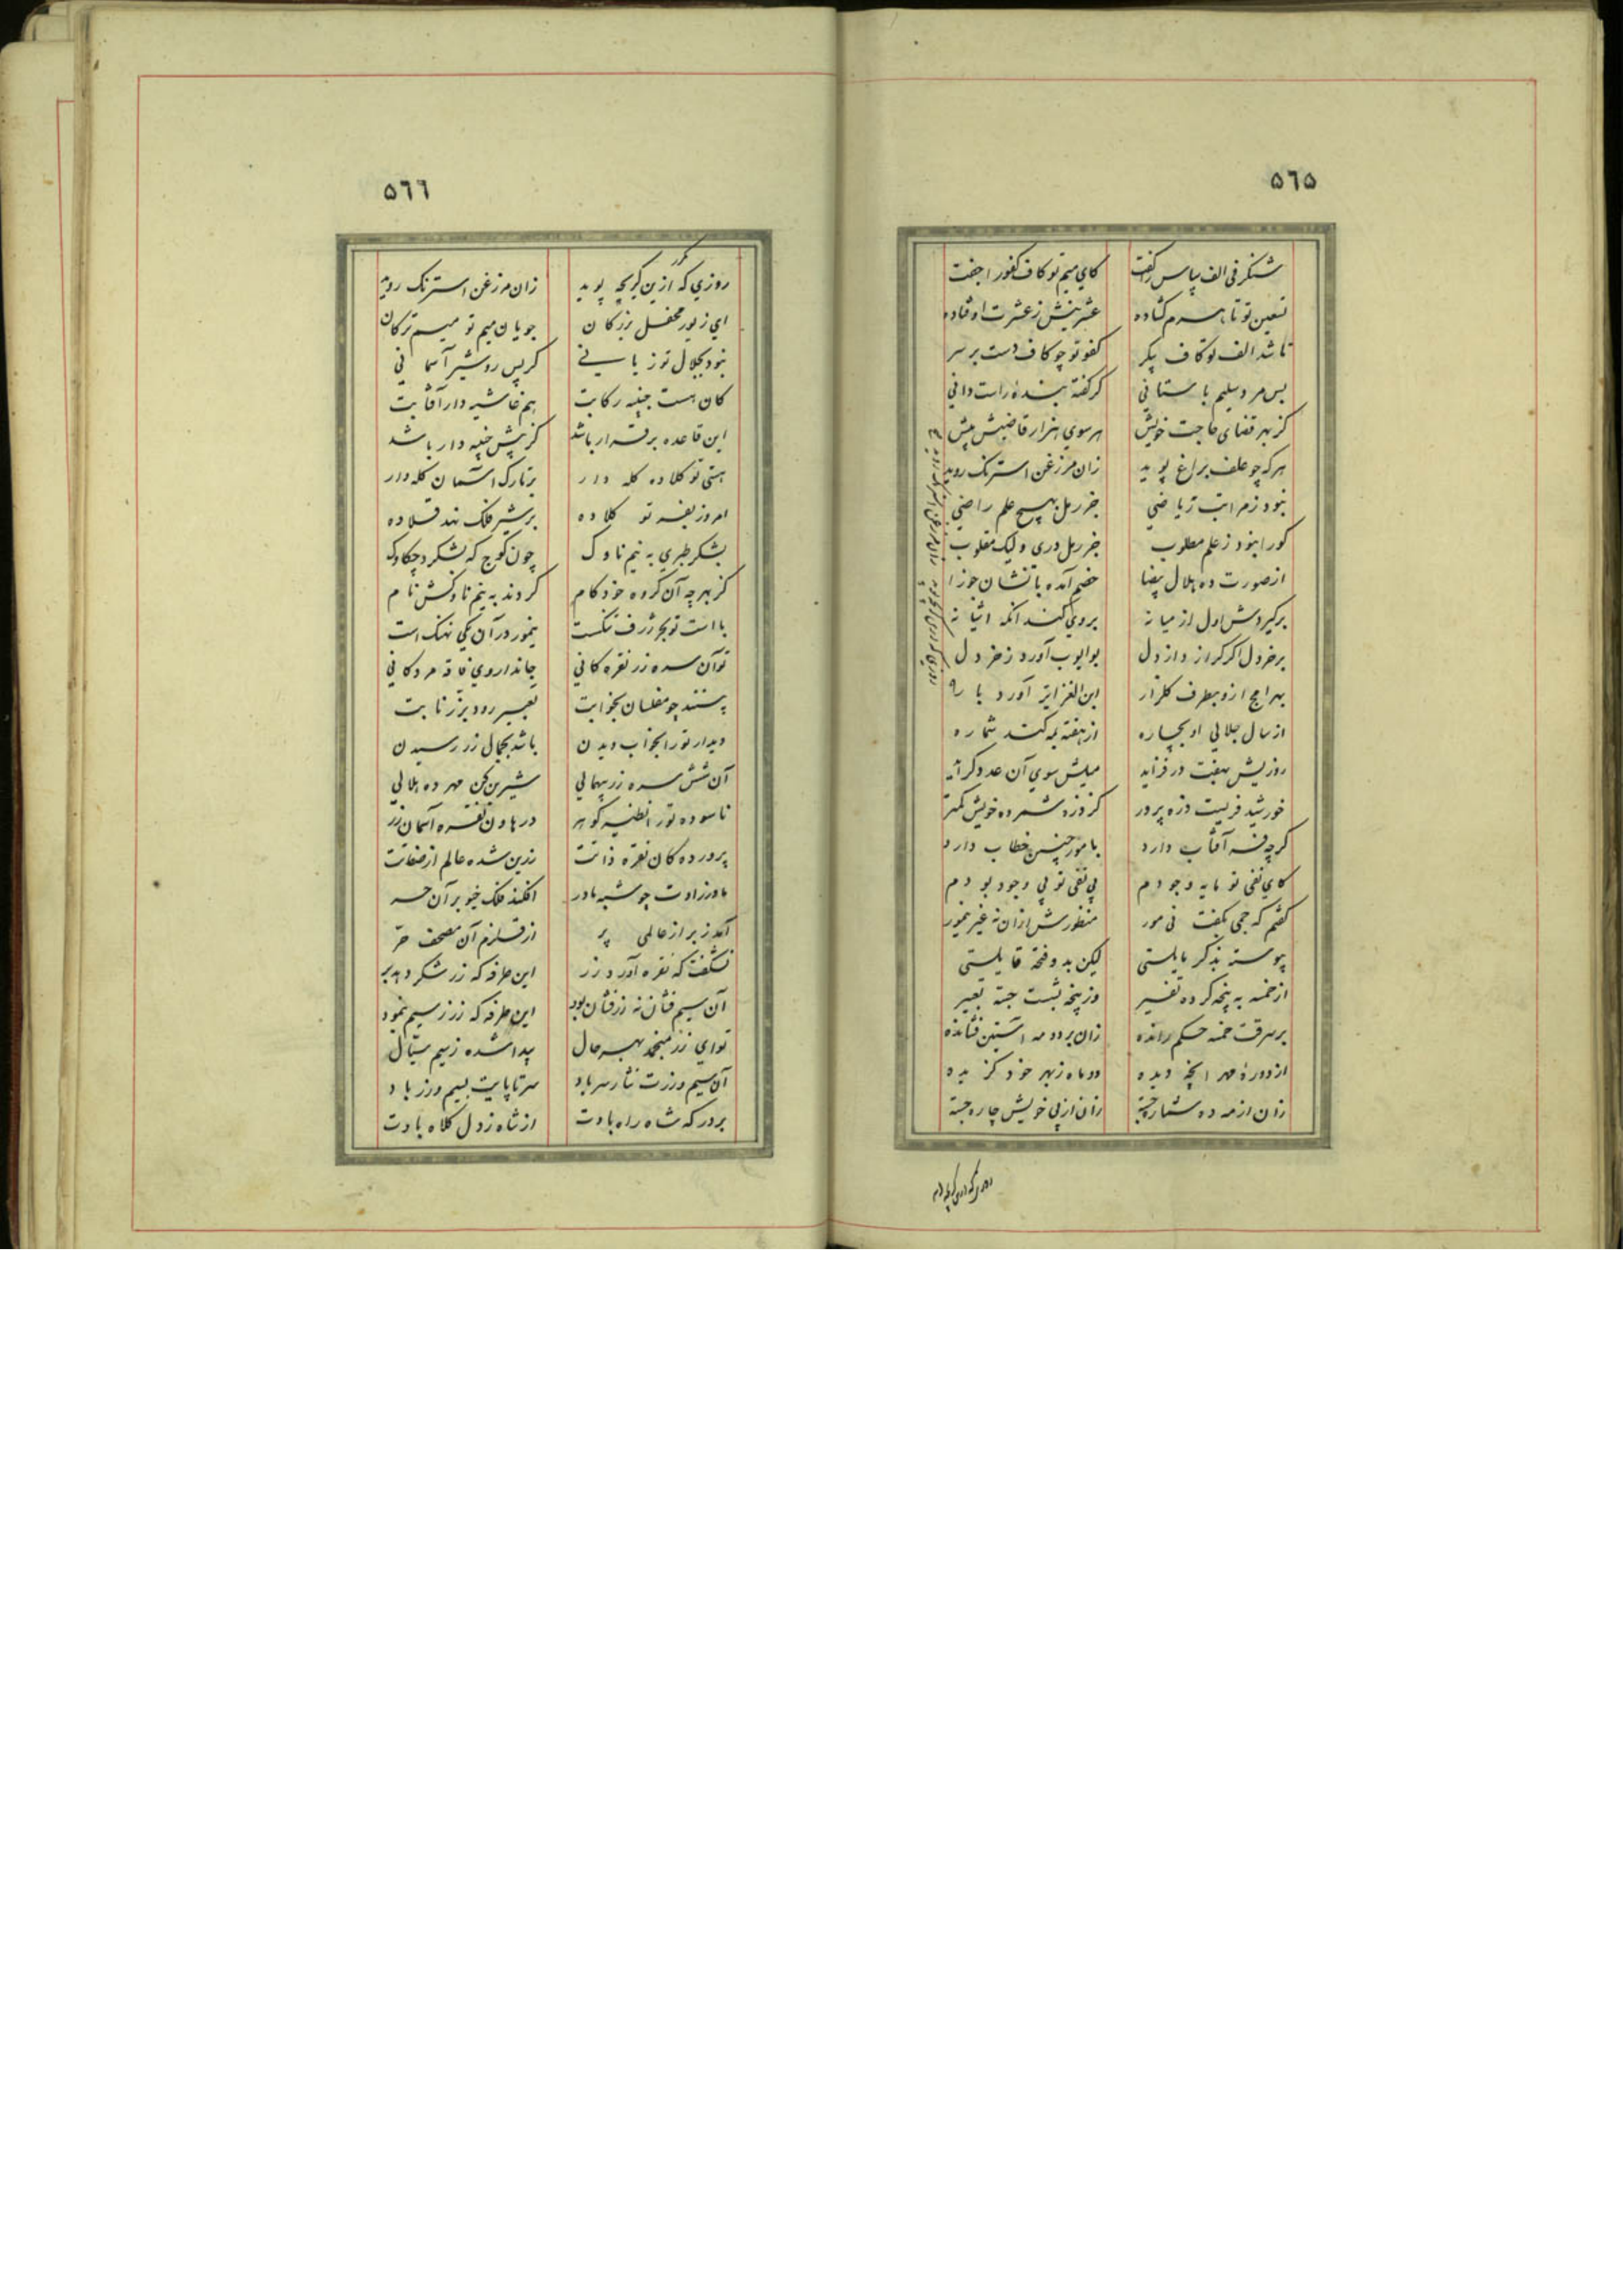 ۵٦۵
شنگرفی الف پیاس گفت کای میم تو کاف کفور اجفت
تسعین تو تا بسرم گشاده عشرینش ز عشرت اوفتاده
تا شد الف تو کاف پیکر کفو تو چو کاف دست بر سر
بس مرد سلیم باستانی کز گفته بنده راست دانی
کز بهر قضای حاجت خویش هر سوی هزار قاضیش پیش
هر که چو علف براغ پوید زان مرزغن استرنک روید
نبود ز مراتب ریاضی جز رمل بهیچ علم راضی
کورا نبود ز علم مطلوب جز رمل دری ولیک مقلوب
از صورت ده هلال بیضا خصم آمده با نشان جوزا
برگیردش اول از میانه بروی کند آنکه
بر خردل اکر از دل بو ایوب آورد ز خردل
بهرامج ازو بطرف گلزار ابن الغزایر آورد بار
از سال جلالی او بچاره از هفته مه کند شماره
روزیش بهفت در فزاید میلش سوی آن عدد گراید
خورشید فریست ذره پرور کز ذره شمرده خویش کمتر
گرچه فر آفتاب دارد با مور چنین خطاب دارد
کای نفی تو مایه وجودم بی نفی تو بی وجود بودم
گفتم که جمی بگفت نی مور منظورش ازان نه غیر نیمور
پیوسته بذکر بابلستی لیکن بدو فتحه قابلستی
از خمسه به پنجه کرده تفسیر وز پنجه بشست جسته تعبیر
بر سرقت خمسه حکم رانده زان بر دو مه آستین فشانده
از دوره مهر آنچه دیده دو ماه ز بهر خود گزیده
زان از مه ده شمار جسته زان از پی خویش چاره جسته
۵٦٦
روزی که ازین کریچه پوید زان مرزغن استرنک روید
گور
ای زیور محفل بزرگان جویان میم تو میم ترکان
نبود بجلال تو زیانی کز پس رو شیر آسمانی
کان هست جنیبه رکابت هم غاشیه دار آفتابت
این قاعده برقرار باشد کز پیش جنیبه دار باشد
هستی تو کلاده کله دار بر تارک آسمان کله دار
امروز بفر تو کلاده بر شیر فلک نهد قلاده
بشکر طبری به نیم ناوک چون کوچ که بشکرد چکاوک
کز بهرچه آن گروه خودکام کردند به نیم ناوکش نام
با است تو بحر ژرف ننگست نیمور در آن یکی نهنگ است
تو آن سره زر نقره کانی جاندار وی فاقه مرد کانی
بینند چو مفلسان بخوابت تعبیر رود بزر نابت
دیدار تورا بخواب دیدن باشد بجمال زر رسیدن
آن شش سره زر بیهمالی شیرین کن مهر ده هلالی
ناسوده تورا نظیر گوهر در هاون نقره آسمان زر
پرورده کان نقره ذاتت زرین شده عالم از صفاتت
مادر زادت چو شبه مادر افکند فلک خیو بر آن سر
آمد زبر از عالمی پر از قلزم آن مصحف حر
نشگفت که نقره آورد زر این طرفه که زر شکر دهد بر
آن سیم فشان نه زر فشان بود این طرفه که زر ز سیم نمود
تو ای زر منجمد بهر حال پیدا شده ز سیم سیال
آن سیم و زرت نثار سر باد سر تا پایت بسیم و زر باد
بر درگه شاه راه بادت از شاه زدل کلاه بادت